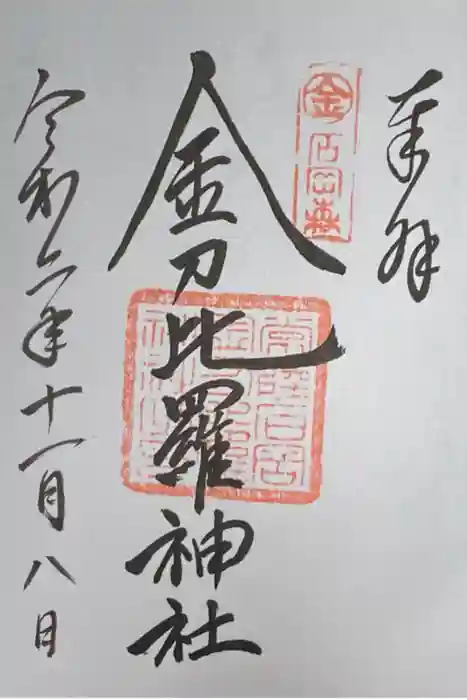 奉拝
金
石岡森
金刀比羅神社
令和六年十一月八日